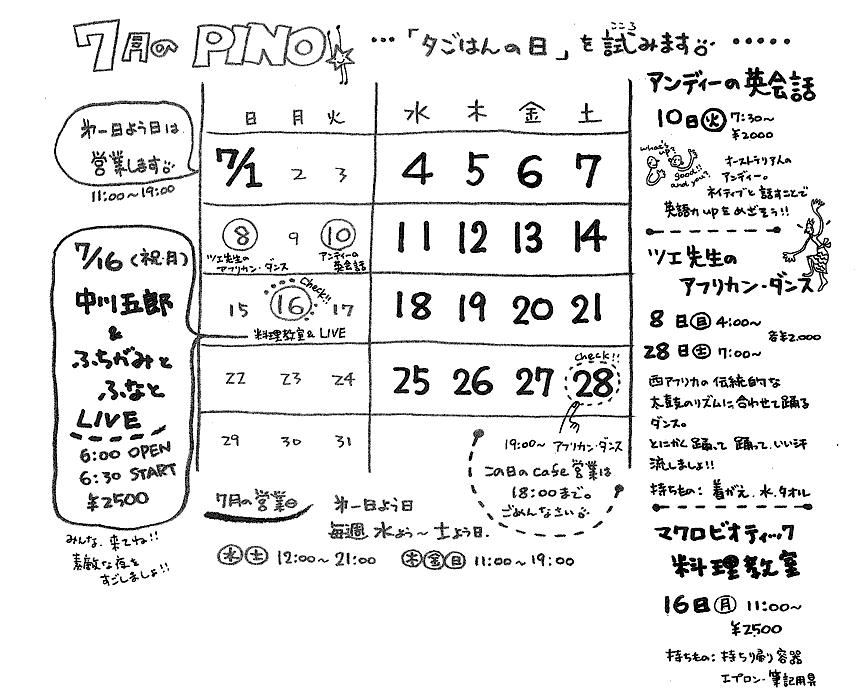 7月の PINO! …「夕ごはんの日」を試みます ・・・・・
こころ
第一日よう日は
営業します
11:00~19:00
日 月 火 水 木 金 土
7/1 2 3 4 5 6 7
8 9 10 11 12 13 14
ツエ先生の
アフリカン・ダンス
アンディーの
英会話
check!!
15 16 17 18 19 20 21
料理教室& LIVE
check!!
22 23 24 25 26 27 28
29 30 31
19:00~ アフリカン・ダンス
この日のcafe営業は
18:00まで。
ごめんなさい
7/16 (祝・月)
中川五郎
&
ふちがみと
ふなと
LIVE
6:00 OPEN
6:30 START
¥2500
みんな、来てね!!
素敵な夜を
すごしましょ!!
7月の営業日
第一日よう日
毎週 水よう~土よう日.
水土 12:00~21:00 木金日 11:00~19:00
アンディーの英会話
10日火 7:30~
¥2000
what's up?
good!!
and you?
オーストラリア人の
アンディー。
ネイティブと話すことで
英語力upをめざそう!!
ツエ先生の
アフリカン・ダンス
8日日 4:00~
28日土 7:00~
各¥2.000
西アフリカの伝統的な
太鼓のリズムに合わせて踊る
ダンス。
とにかく踊って踊って、いい汗
流しましょ!!
持ちもの: 着がえ.水.タオル
マクロビオティック
料理教室
16日月 11:00~
¥2500
持ちもの: 持ち帰り容器
エプロン・筆記用具